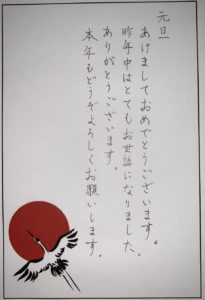 元旦
あけましておめでとうございます。
昨年中はとてもお世話になりました。
ありがとうございます。
本年もどうぞよろしくお願いします。